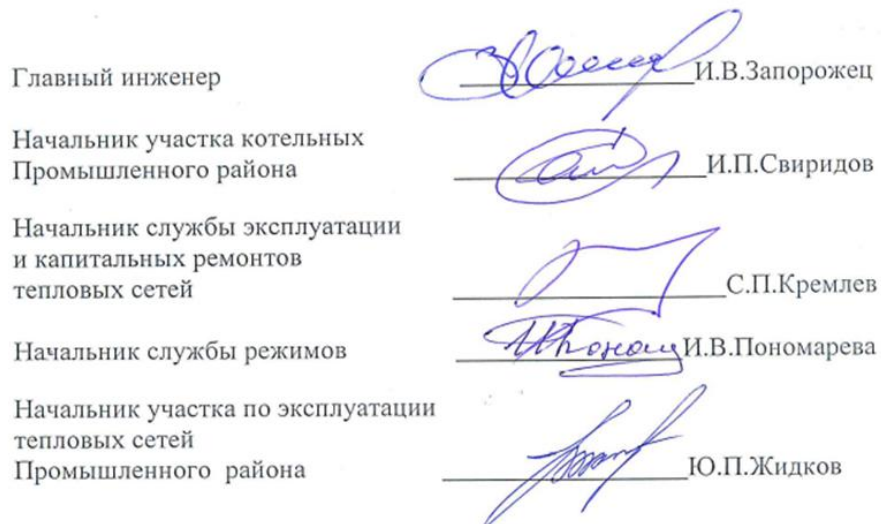 Главный инженер И.В.Запорожец
Начальник участка котельных
Промышленного района И.П.Свиридов
Начальник службы эксплуатации
и капитальных ремонтов
тепловых сетей С.П.Кремлев
Начальник службы режимов И.В.Пономарева
Начальник участка по эксплуатации
тепловых сетей
Промышленного района Ю.П.Жидков